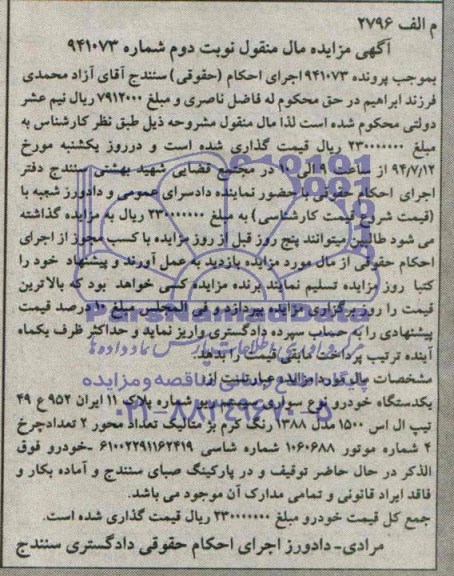 م الف ۲۷۹۶
آگهی مزایده مال منقول نوبت دوم شماره ۹۴۱۰۷۳
بموجب پرونده ۹۴۱۰۷۳ اجرای احکام (حقوقی) سنندج آقای آزاد محمدی
فرزند ابراهیم در حق محکوم له فاضل ناصری و مبلغ ۷۹۱۲۰۰۰ ریال نیم عشر
دولتی محکوم شده است لذا مال منقول مشروحه ذیل طبق نظر کارشناس به
مبلغ ۲۳۰۰۰۰۰۰۰ ریال قیمت گذاری شده است و درروز یکشنبه مورخ
۹۴/۷/۱۲ از ساعت ۹ الی ۱۰ در مجتمع قضایی شهید بهشتی سنندج دفتر
اجرای احکام حقوقی با حضور نماینده دادسرای عمومی و دادورز شعبه با
(قیمت شروع قیمت کارشناسی) به مبلغ ۲۳۰۰۰۰۰۰۰ ریال به مزایده گذاشته
می شود طالبین میتوانند پنج روز قبل از روز مزایده با کسب مجوز از اجرای
احکام حقوقی از مال مورد مزایده بازدید به عمل آورند و پیشنهاد خود را
کتبا روز مزایده تسلیم نمایند برنده مزایده کسی خواهد بود که بالاترین
قیمت را روز برگزاری مزایده بپردازد و فی المجلس مبلغ ۱۰ درصد قیمت
پیشنهادی را به حساب سپرده دادگستری واریز نماید و حداکثر ظرف یکماه
آینده ترتیب پرداخت مابقی قیمت را بدهد.
مشخصات مال مورد مزایده عبارتست از:
یکدستگاه خودرو نوع سواری سمند بشماره پلاک ۱۱ ایران ۹۵۲ ع ۴۹
تیپ ال اس ۱۵۰۰ مدل ۱۳۸۸ رنگ کرم بژ متالیک تعداد محور ۲ تعدادچرخ
۴ شماره موتور ۱۰۶۰۶۸۸ شماره شاسی ۶۱۰۰۲۲۹۱۱۶۲۴۱۹ -خودرو فوق
الذکر در حال حاضر توقیف و در پارکینگ صبای سنندج و آماده بکار و
فاقد ایراد قانونی و تمامی مدارک آن موجود می باشد.
جمع کل قیمت خودرو مبلغ ۲۳۰۰۰۰۰۰۰ ریال قیمت گذاری شده است.
مرادی- دادورز اجرای احکام حقوقی دادگستری سنندج
ParsNamadData
پایگاه اطلاع رسانی مناقصه و مزایده
۰۲۱-۸۸۳۴۹۶۷۰-۵